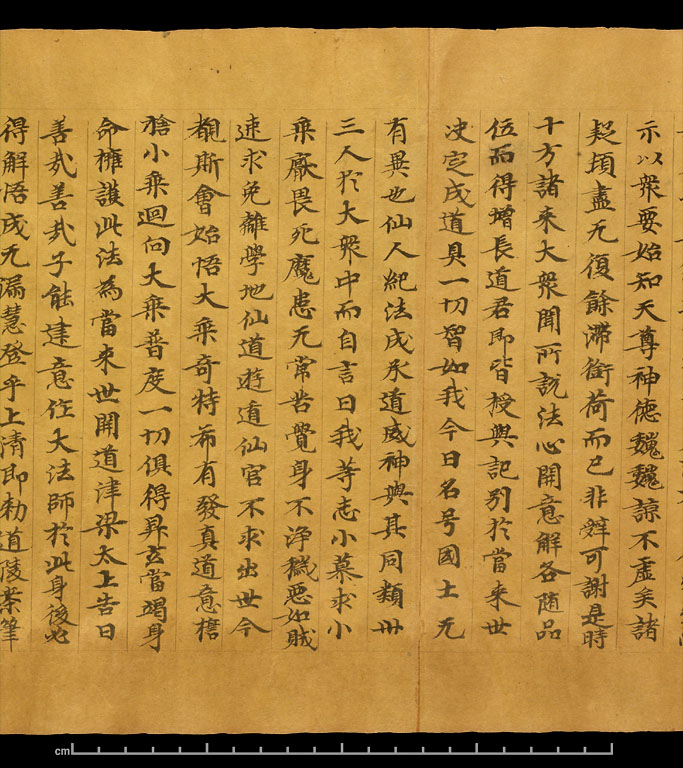 示以衆要始知天尊神德巍巍諒不虛矣諸
疑頓盡无復餘滯銜荷而已非辤可謝是時
十方諸來大衆聞所說法心開意解各随品
伍而得增長道君即皆授與記别於當來世
决定成道具一切智如我今日名号國土无
有異也仙人紀法成承道威神與其同類卅
三人於大衆中而自言曰我等志小慕求小
乘厭畏死魔患无常苦覺身不浄穢惡如賊
速求免離學地仙道遊道仙官不求出世今
覩斯會始悟大乘奇特希有發真道意㩜
捨小乘迴向大乘普度一切俱得昇玄當竭身
命擁護此法為當來世開道津梁太上告曰
善哉善哉子能建意任大法師於此身後必
得解悟成无漏慧登乎上清即勑道陵柒筆